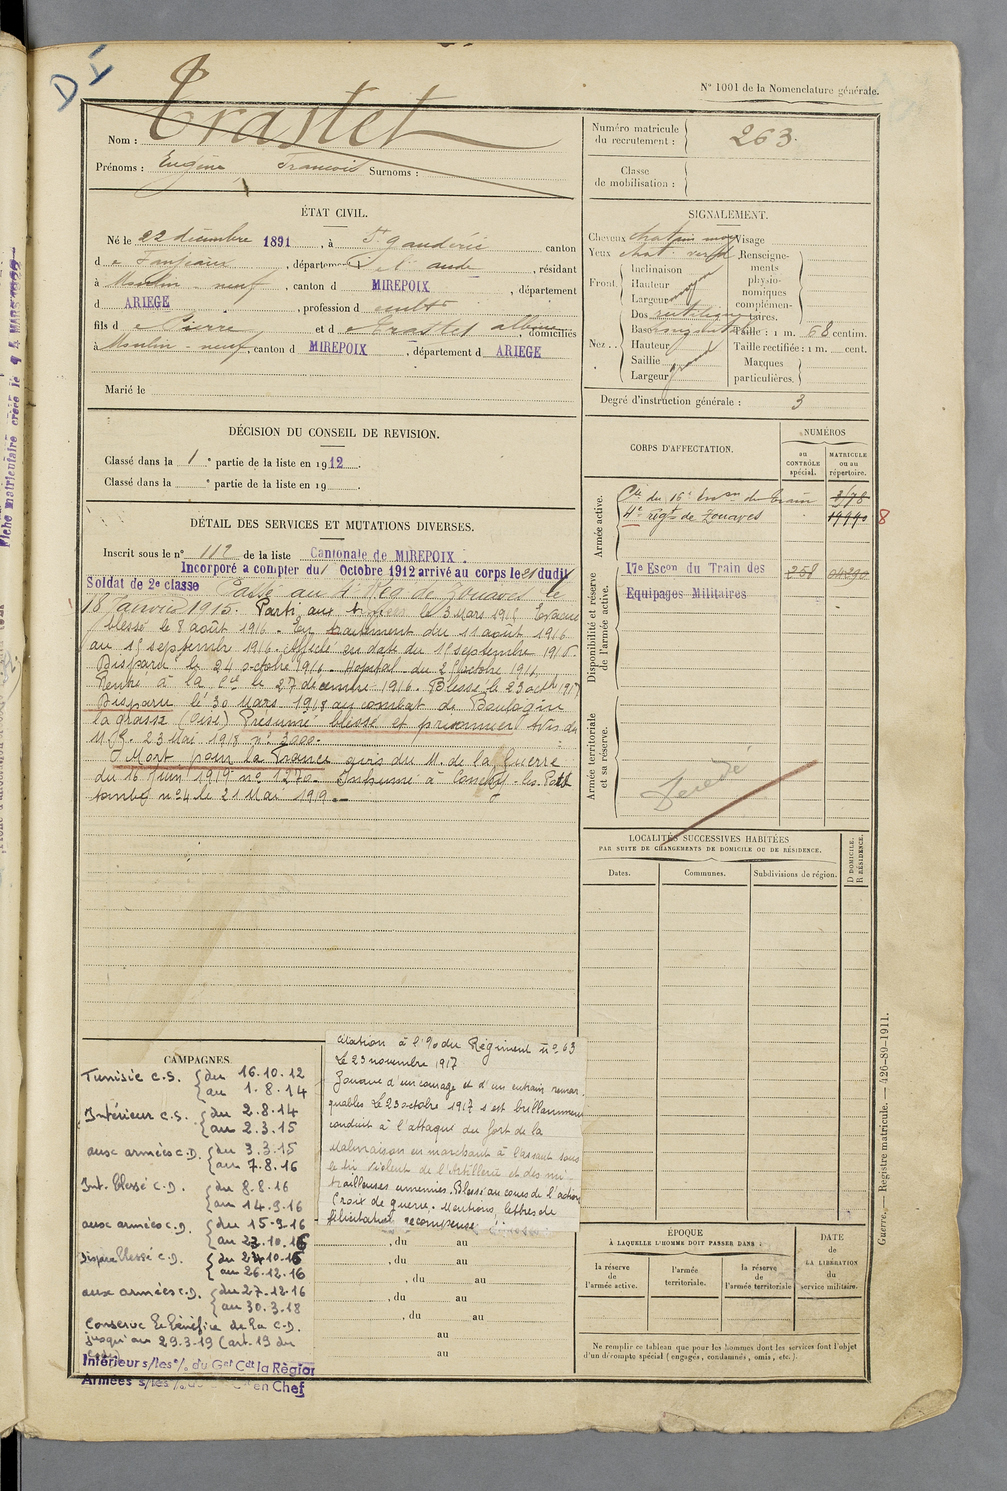 D I
N° 1001 de la Nomenclature générale.
Nom : Trastet
Prénoms : Eugène François Surnoms :
Numéro matricule du recrutement : 263.
Classe de mobilisation :
ÉTAT CIVIL.
Né le 22 décembre 1891, à St gaudéric canton
d e Fanjeaux, département de l'aude, résidant
à Moulin-neuf, canton d MIREPOIX, département
d ARIEGE, profession d cultr
fils d e Pierre et d e Trastet albine, domiciliés
à Moulin-neuf, canton d MIREPOIX, département d ARIEGE
Marié le
SIGNALEMENT.
Cheveux chatain moy Visage
Yeux chat. verd
Renseignements physionomiques complémentaires.
Front.
Inclinaison
Hauteur
Largeur moy
Nez..
Dos rectiligne
Base
Hauteur
Saillie
Largeur
Taille : 1 m. 68 centim.
Taille rectifiée : 1 m. cent.
Marques particulières.
Degré d'instruction générale : 3
DÉCISION DU CONSEIL DE REVISION.
Classé dans la 1e partie de la liste en 1912.
Classé dans la e partie de la liste en 19
CORPS D'AFFECTATION.
NUMÉROS
au CONTRÔLE spécial.
MATRICULE ou au répertoire.
Armée active.
Cie du 16e Escon du Train
4e régt de Zouaves 19990 8
Disponibilité et réserve de l'armée active.
17e Escon du Train des 258
Equipages Militaires
Armée territoriale et sa réserve.
DÉTAIL DES SERVICES ET MUTATIONS DIVERSES.
Inscrit sous le n° 112 de la liste Cantonale de MIREPOIX.
Incorporé a compter du 1 Octobre 1912 arrivé au corps le dudit
Soldat de 2e classe Passé au 4e Reg de Zouaves le
18 Janvier 1915. Parti aux le 3 Mars 1915 Evacué
blessé le 8 août 1916. En du 11 août 1916
au 15 septembre 1916. Affecté en date du 15 septembre 1916.
Disparu le 24 octobre 1916. Hopital du octobre 1916
Rentré à la Cie le 27 décembre 1916. Blessé le 23 octb 1917
Disparu le 30 Mars 1918 au combat de Boulogne
la grasse (Oise) Présumé blessé et prisonnier avis du
23 Mai 1918 n° 3000.
Mort pour la France avis du M. de la Guerre
du 16 Juin 1919 n° 1270. Inhumé à Conchy-les-Pots
tombe n° 4 le 21 Mai 1919.
LOCALITÉS SUCCESSIVES HABITÉES
PAR SUITE DE CHANGEMENTS DE DOMICILE OU DE RÉSIDENCE.
Dates. Communes. Subdivisions de région. D DOMICILE. R RÉSIDENCE.
CAMPAGNES.
Tunisie C.S. du 16.10.12
au 1.8.14
Intérieur C.S. du 2.8.14
au 2.3.15
aux armées C.D. du 3.3.15
au 7.8.16
Int. blessé C.D. du 8.8.16
au 14.9.16
aux armées C.D. du 15.9.16
au 23.10.16
Disparu blessé C.D. du 24.10.16
au 26.12.16
aux armées C.D. du 27.12.16
au 30.3.18
Conserve le bénéfice de la C.D.
jusqu'au 29.3.19 (art. 19 du
Intérieur s/les °/. du Gal Cdt la Région
Armées s/les °/. en Chef
Citation à l'°/o du Régiment n° 63
Le 23 novembre 1917
Zouave d'un courage et d'un entrain remar-
quables Le 23 octobre 1917 s'est brillamment
conduit à l'attaque du fort de la
Malmaison en marchant à l'assaut sous
le tir violent de l'Artillerie et des mi-
trailleuses ennemies. Blessé au cours de l'action
Croix de guerre. Mentions, lettres de
félicitation recompense
, du au
, du au
, du au
, du au
, du au
au
au
ÉPOQUE
À LAQUELLE L'HOMME DOIT PASSER DANS :
la réserve de l'armée active.
l'armée territoriale.
la réserve de l'armée territoriale
DATE de LA LIBÉRATION du service militaire.
Ne remplir ce tableau que pour les hommes dont les services font l'objet
d'un décompte spécial (engagés, condamnés, omis, etc.).
Guerre. — Registre matricule. — 426-89-1911.